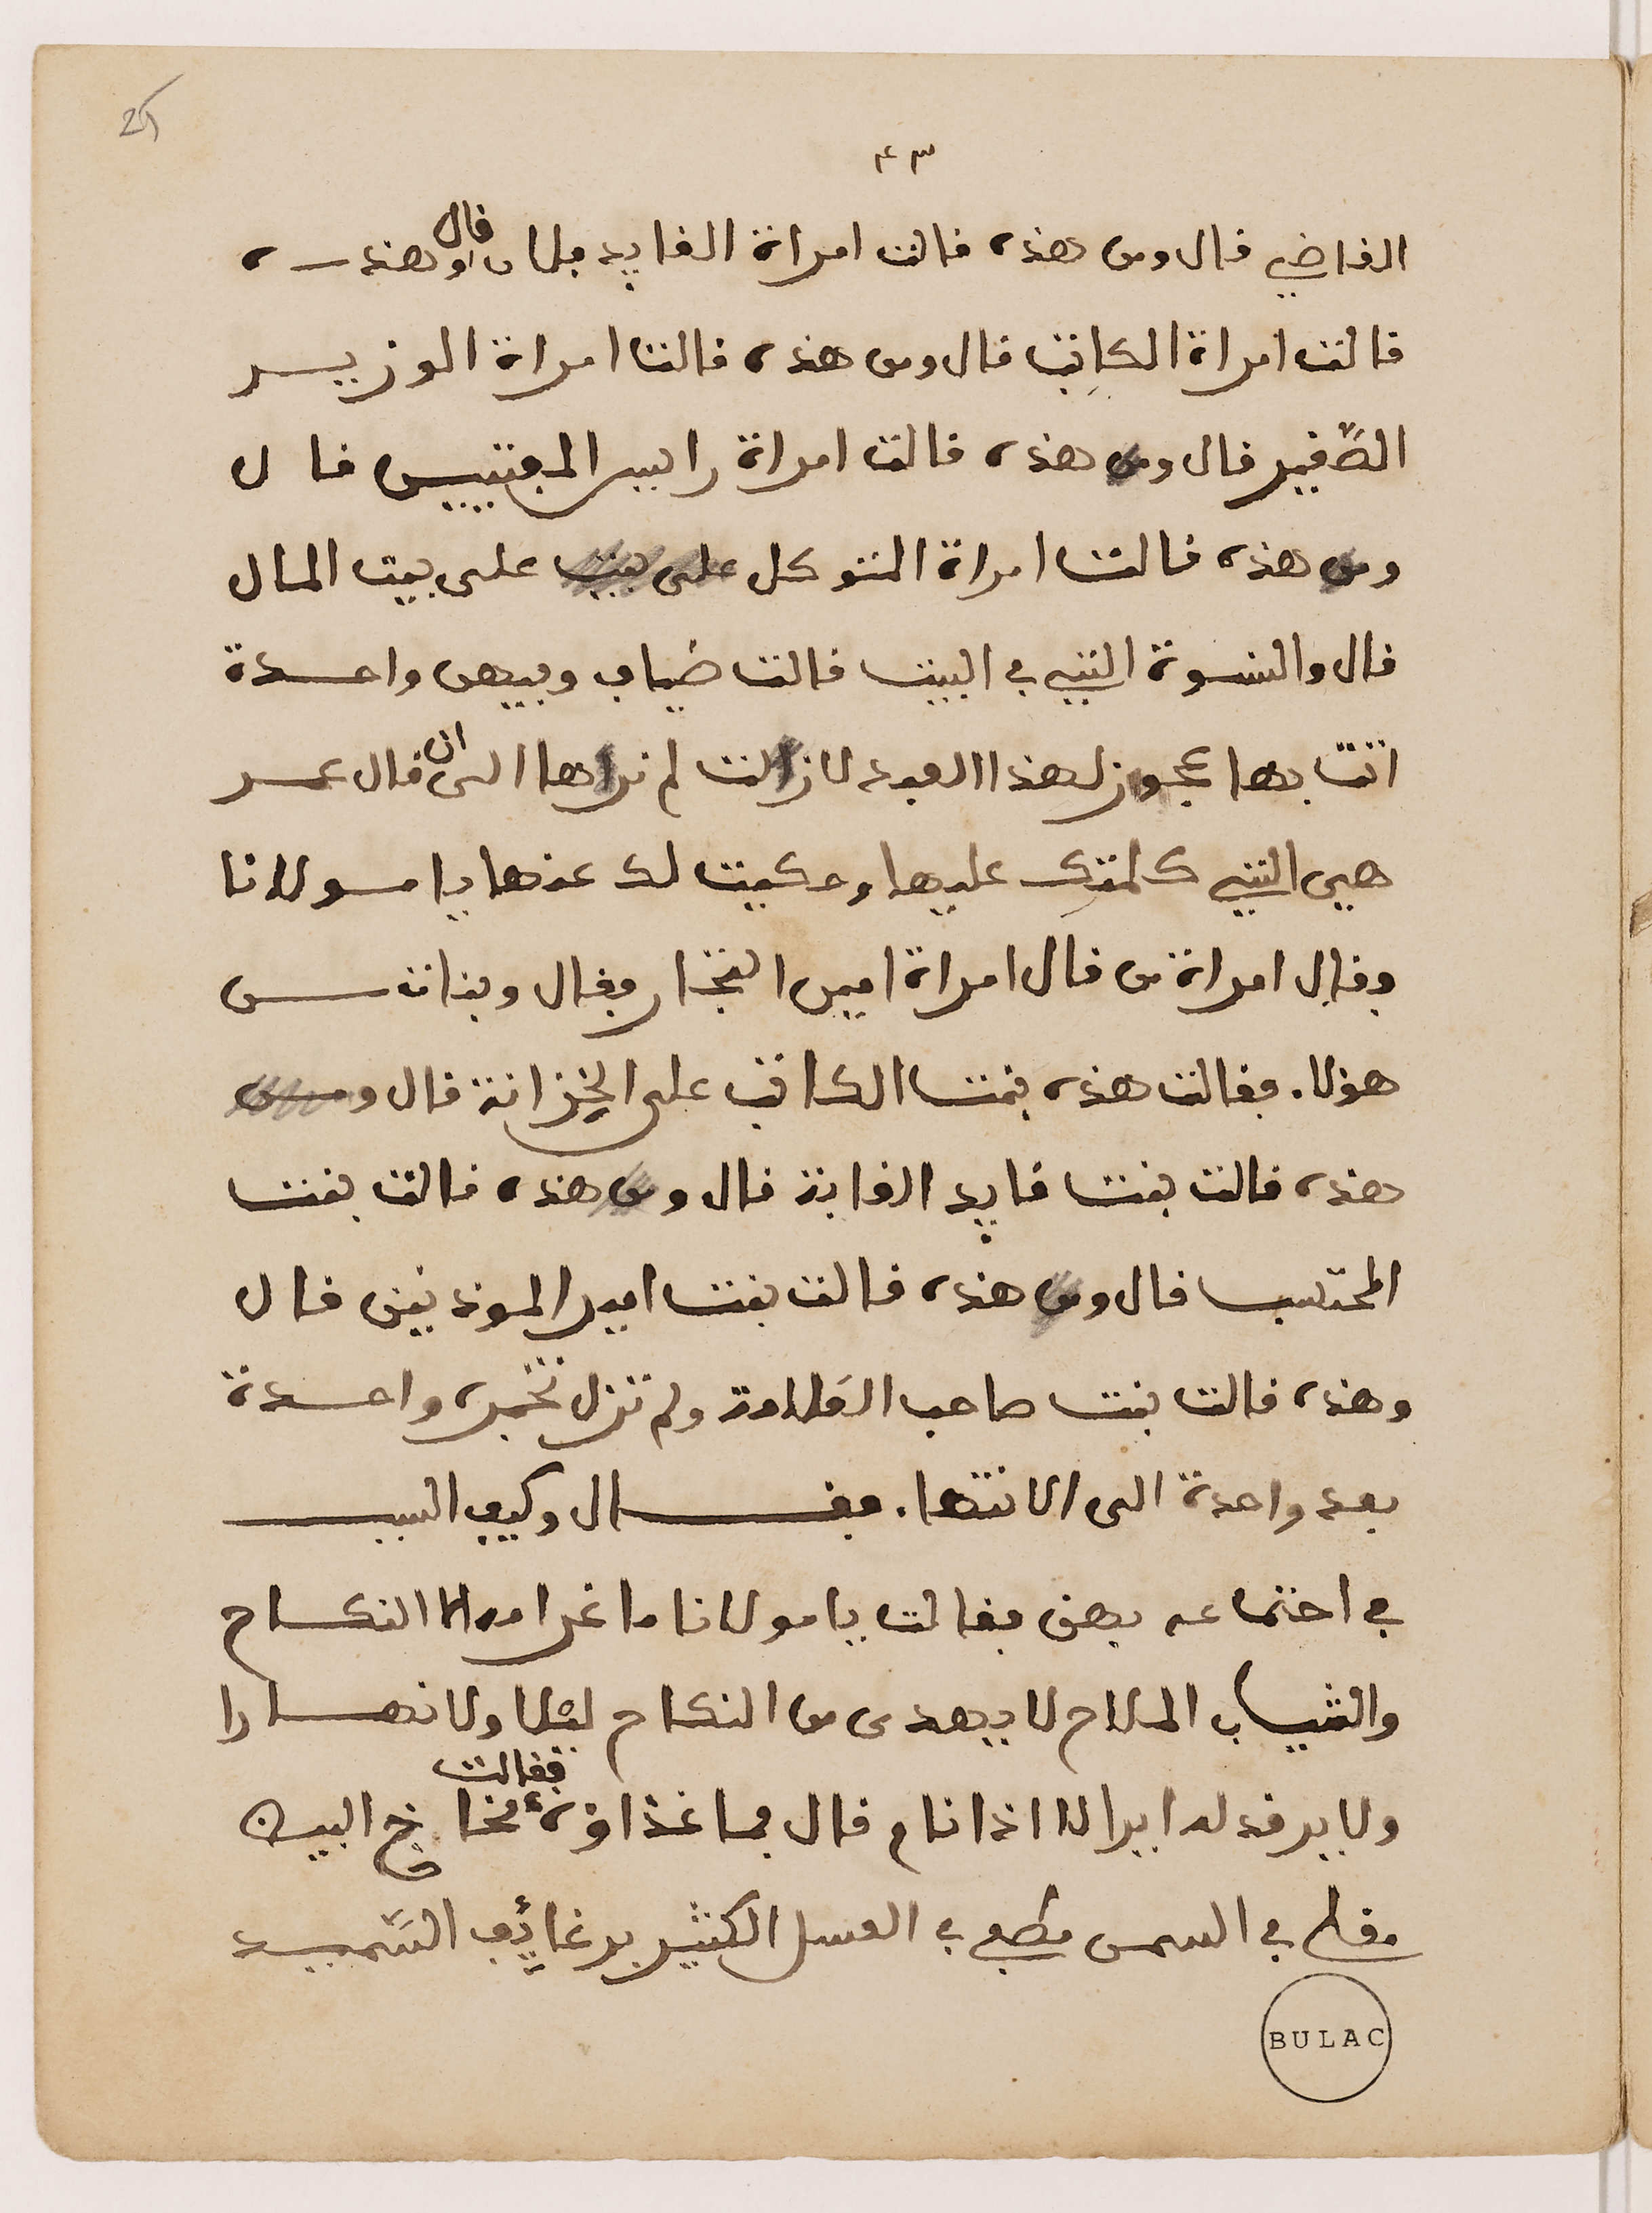 ٤٣
القاضي قال ومن هذه قالت امراة القايد فلان قال وهذه
قالت امراة الكاتب قال ومن هذه قالت امراة الوزير
الصّغير قال ومن هذه قالت امراة راييس المفتيين قال
ومن هذه قالت امراة المتوكل على بيت على بيت المال
قال والنسوة التي في البيت قالت ضياف وفيهن واحدة
اتت بها عجوز لهذا العبد لازالت لم نراها الى ان قال عمر
هي التي كلمتك عليها وحكيت لك عنها يا مولانا
وقال امراة من قال امراة امين النجار فقال وبنات من
هولا. فقالت هذه بنت الكاتب على الخزانة قال ومن
هذه قالت بنت قايد الغابة قال ومن هذه قالت بنت
المحتسب قال ومن هذه قالت بنت امير الموذنين قال
وهذه قالت بنت صاحب العلامة ولم تزل تخبره واحدة
بعد واحدة الى الانتها. فقال وكيف السبب
في اجتماعه بهن فقالت يا مولانا ما غرامه الا النكاح
والشباب الملاح لا يهدى من النكاح ليلا ولا نهارا
ولا يرقد له اير الا اذا نام قال فما غذاؤه فقالت مخاخ البيض
مقلي في السمن مطبي في العسل الكثير برغايف السّميد
BULAC